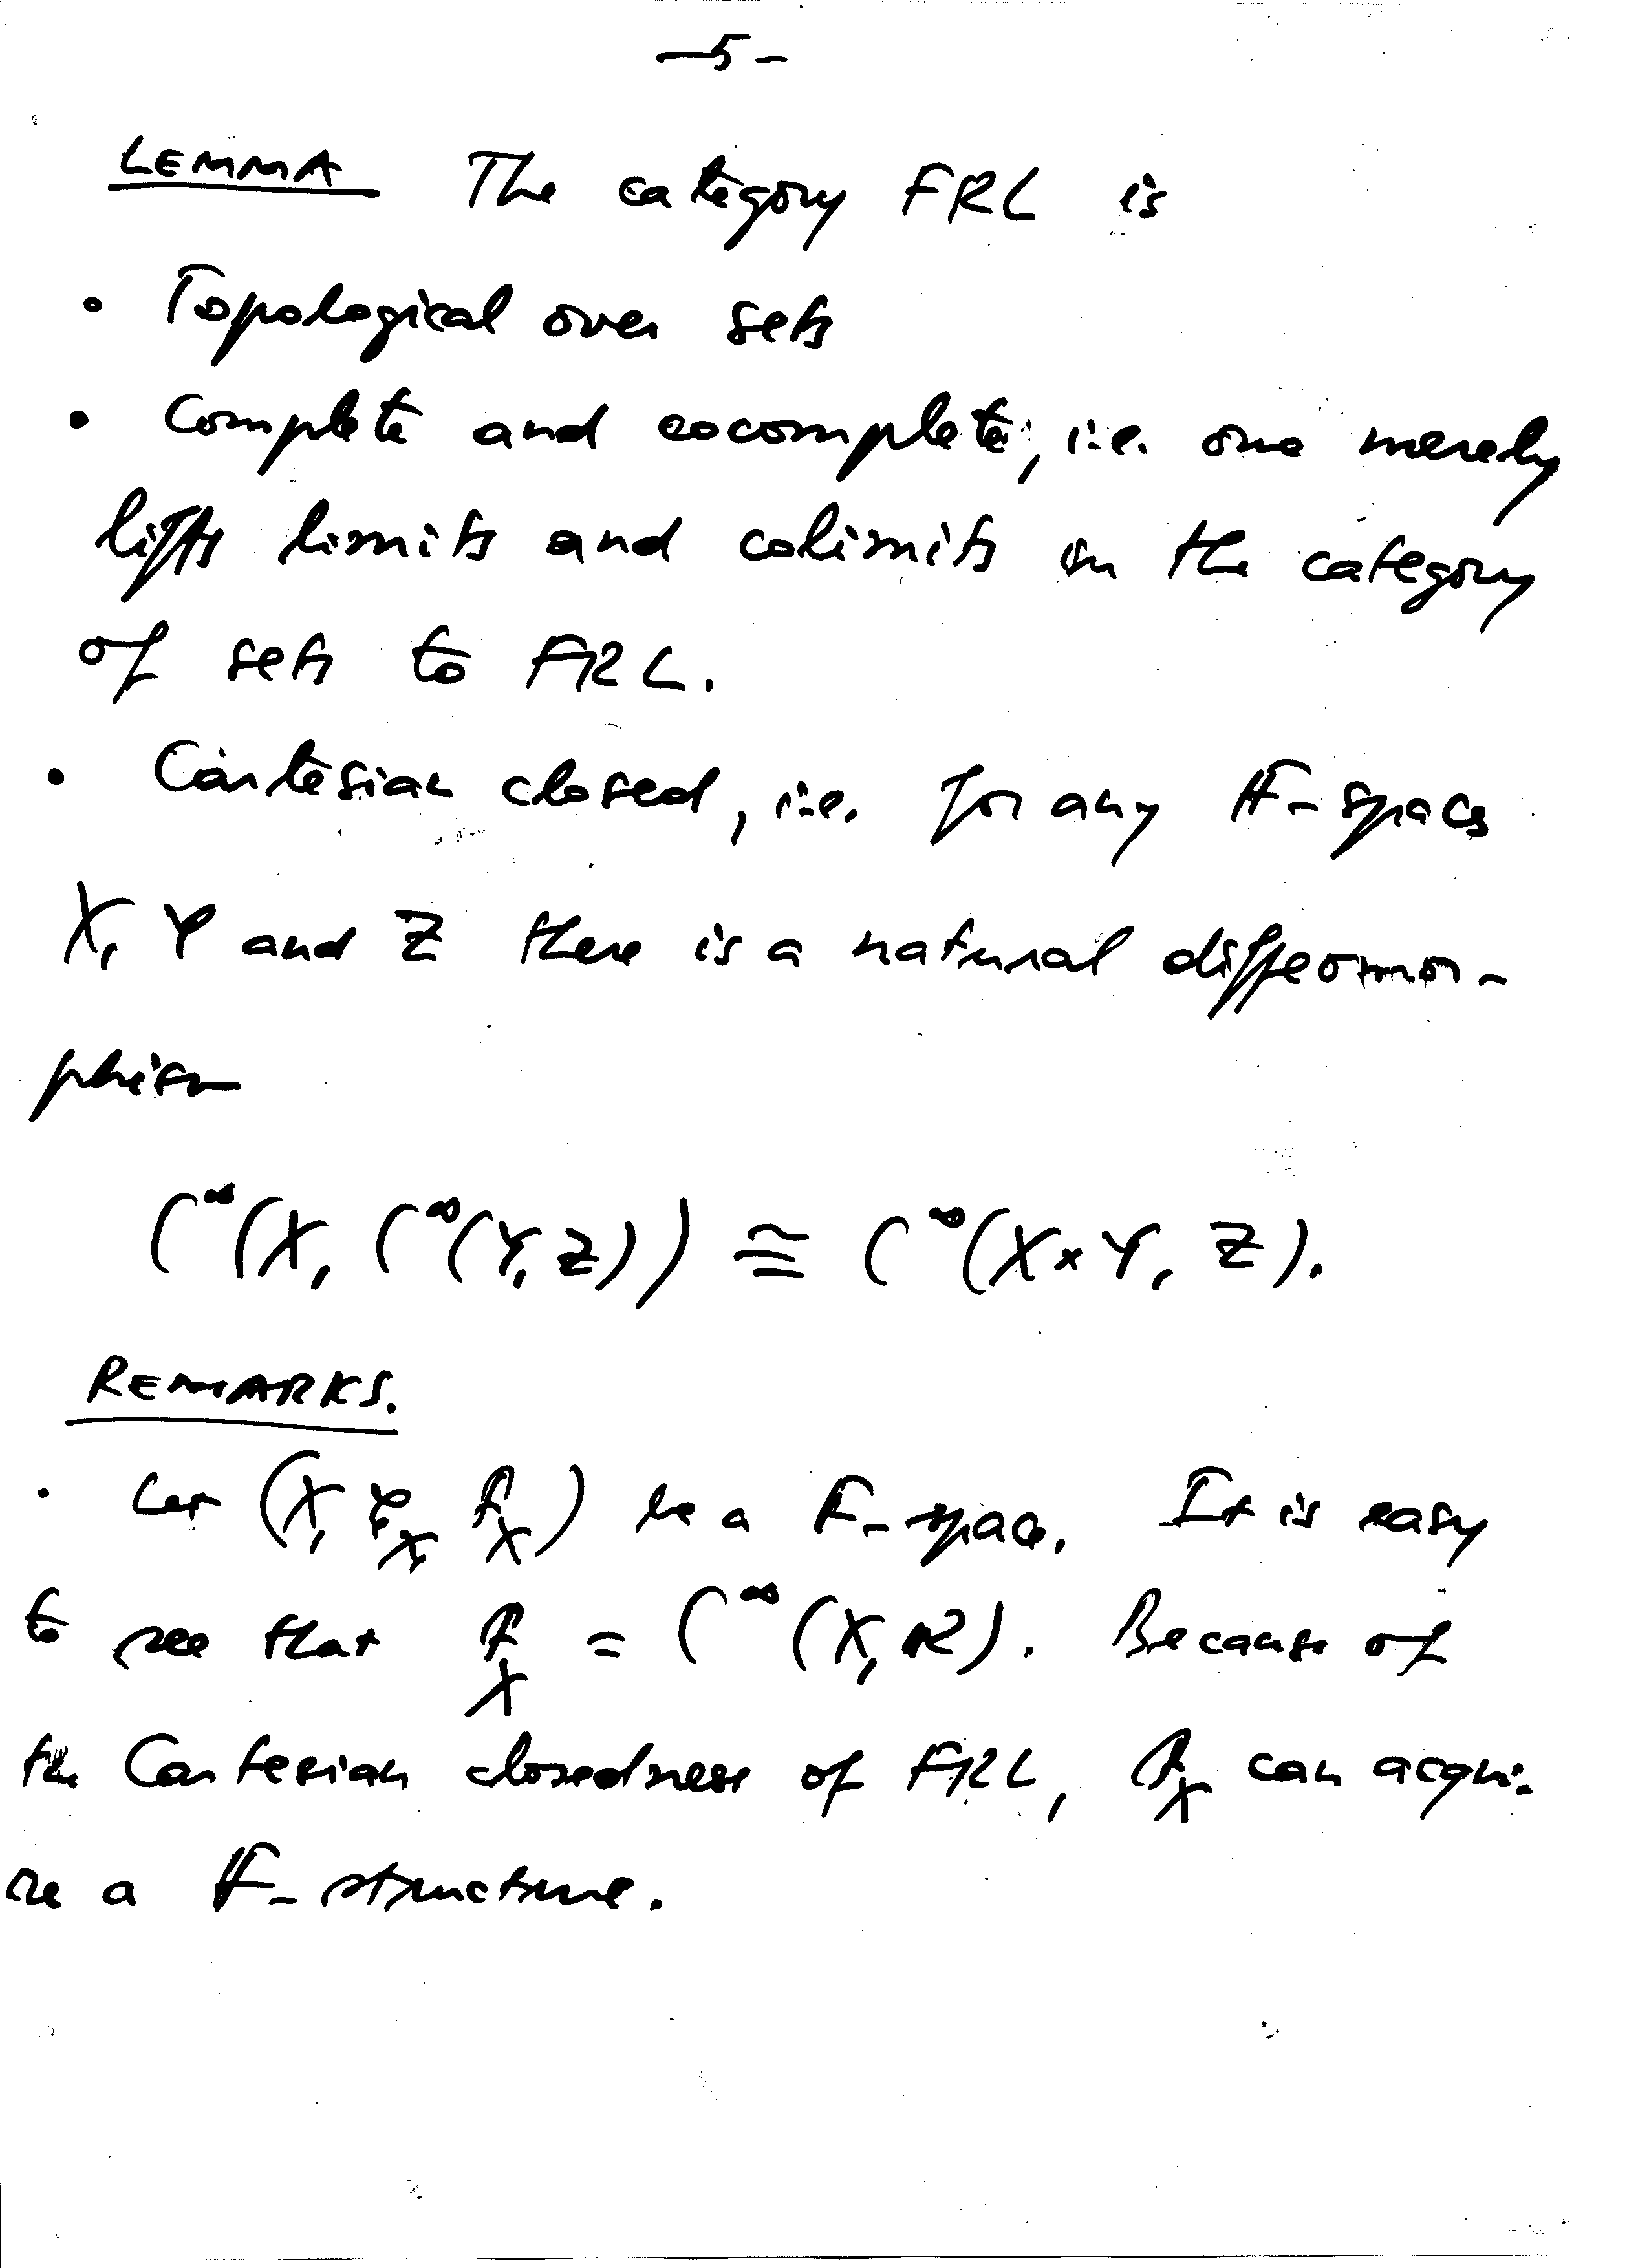 -5-
LEMMA The category FRL is
• Topological over sets
• Complete and cocomplete, i.e. one merely
lifts limits and colimits in the category
of sets to FRL.
• Cartesian closed, i.e. for any F-spaces
X, Y and Z there is a natural diffeomor-
phism
C^∞(X, C^∞(Y, Z)) ≅ C^∞(X×Y, Z).
REMARKS.
• Let (X, 𝒞_X, ℱ_X) be a F-space. It is easy
to see that ℱ_X = C^∞(X, R). Because of
the Cartesian closedness of FRL, ℱ_X can acqui-
re a F-structure.